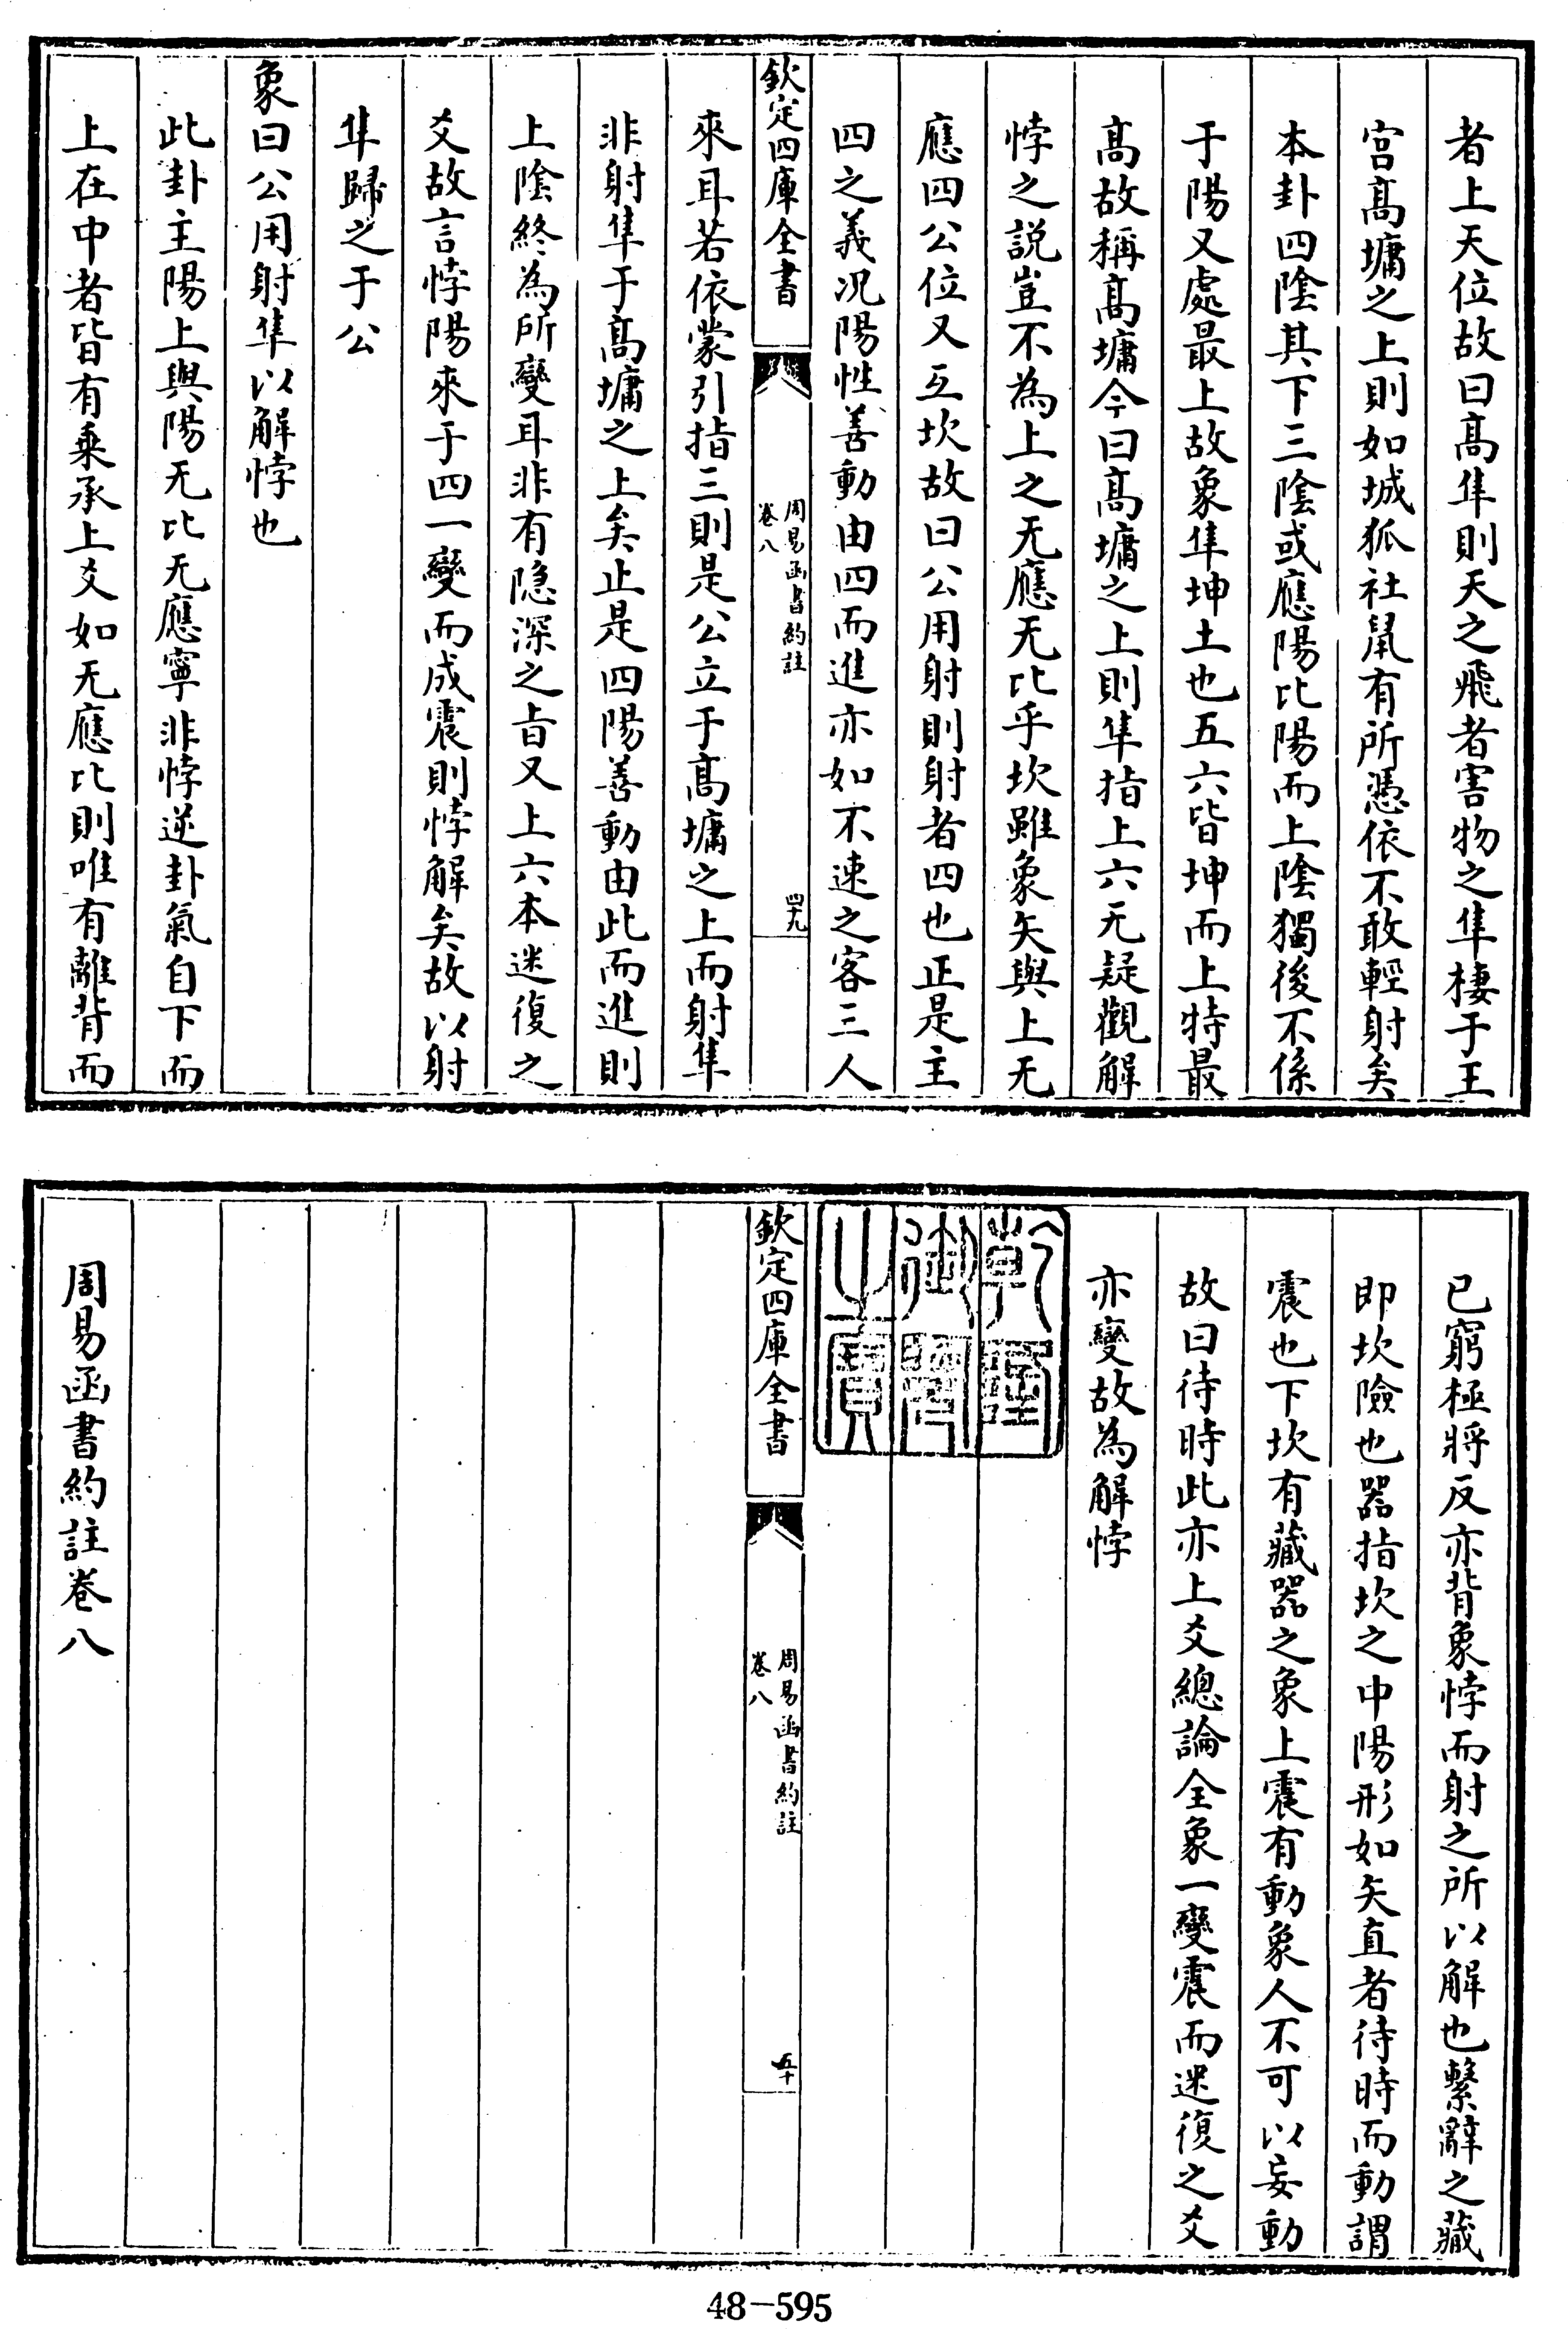 者上天位故曰髙隼則天之飛者害物之隼棲于王
宫髙墉之上則如城狐社鼠有所憑依不敢輕射矣
本卦四陰其下三陰或應陽比陽而上陰獨後不係
于陽又處最上故象隼坤土也五六皆坤而上特最
髙故稱髙墉今曰髙墉之上則隼指上六无疑觀解
悖之説豈不為上之无應无比乎坎雖象矢與上无
應四公位又互坎故曰公用射則射者四也正是主
四之義况陽性善動由四而進亦如不速之客三人
欽定四庫全書
周易函書約註
卷八
四十九
來耳若依蒙引指三則是公立于髙墉之上而射隼
非射隼于髙墉之上矣止是四陽善動由此而進則
上陰終為所變耳非有隐深之㫖又上六本迷復之
爻故言悖陽來于四一變而成震則悖解矣故以射
隼歸之于公
象曰公用射隼以解悖也
此卦主陽上與陽无比无應寧非悖逆卦氣自下而
上在中者皆有乗承上爻如无應比則唯有離背而
已窮極將反亦背象悖而射之所以解也繫辭之藏
即坎險也器指坎之中陽形如矢直者待時而動謂
震也下坎有藏器之象上震有動象人不可以妄動
故曰待時此亦上爻總論全象一變震而迷復之爻
亦變故為解悖
乾隆
御覽
之寶
欽定四庫全書
周易函書約註
卷八
五十
周易函書約註卷八
48-595